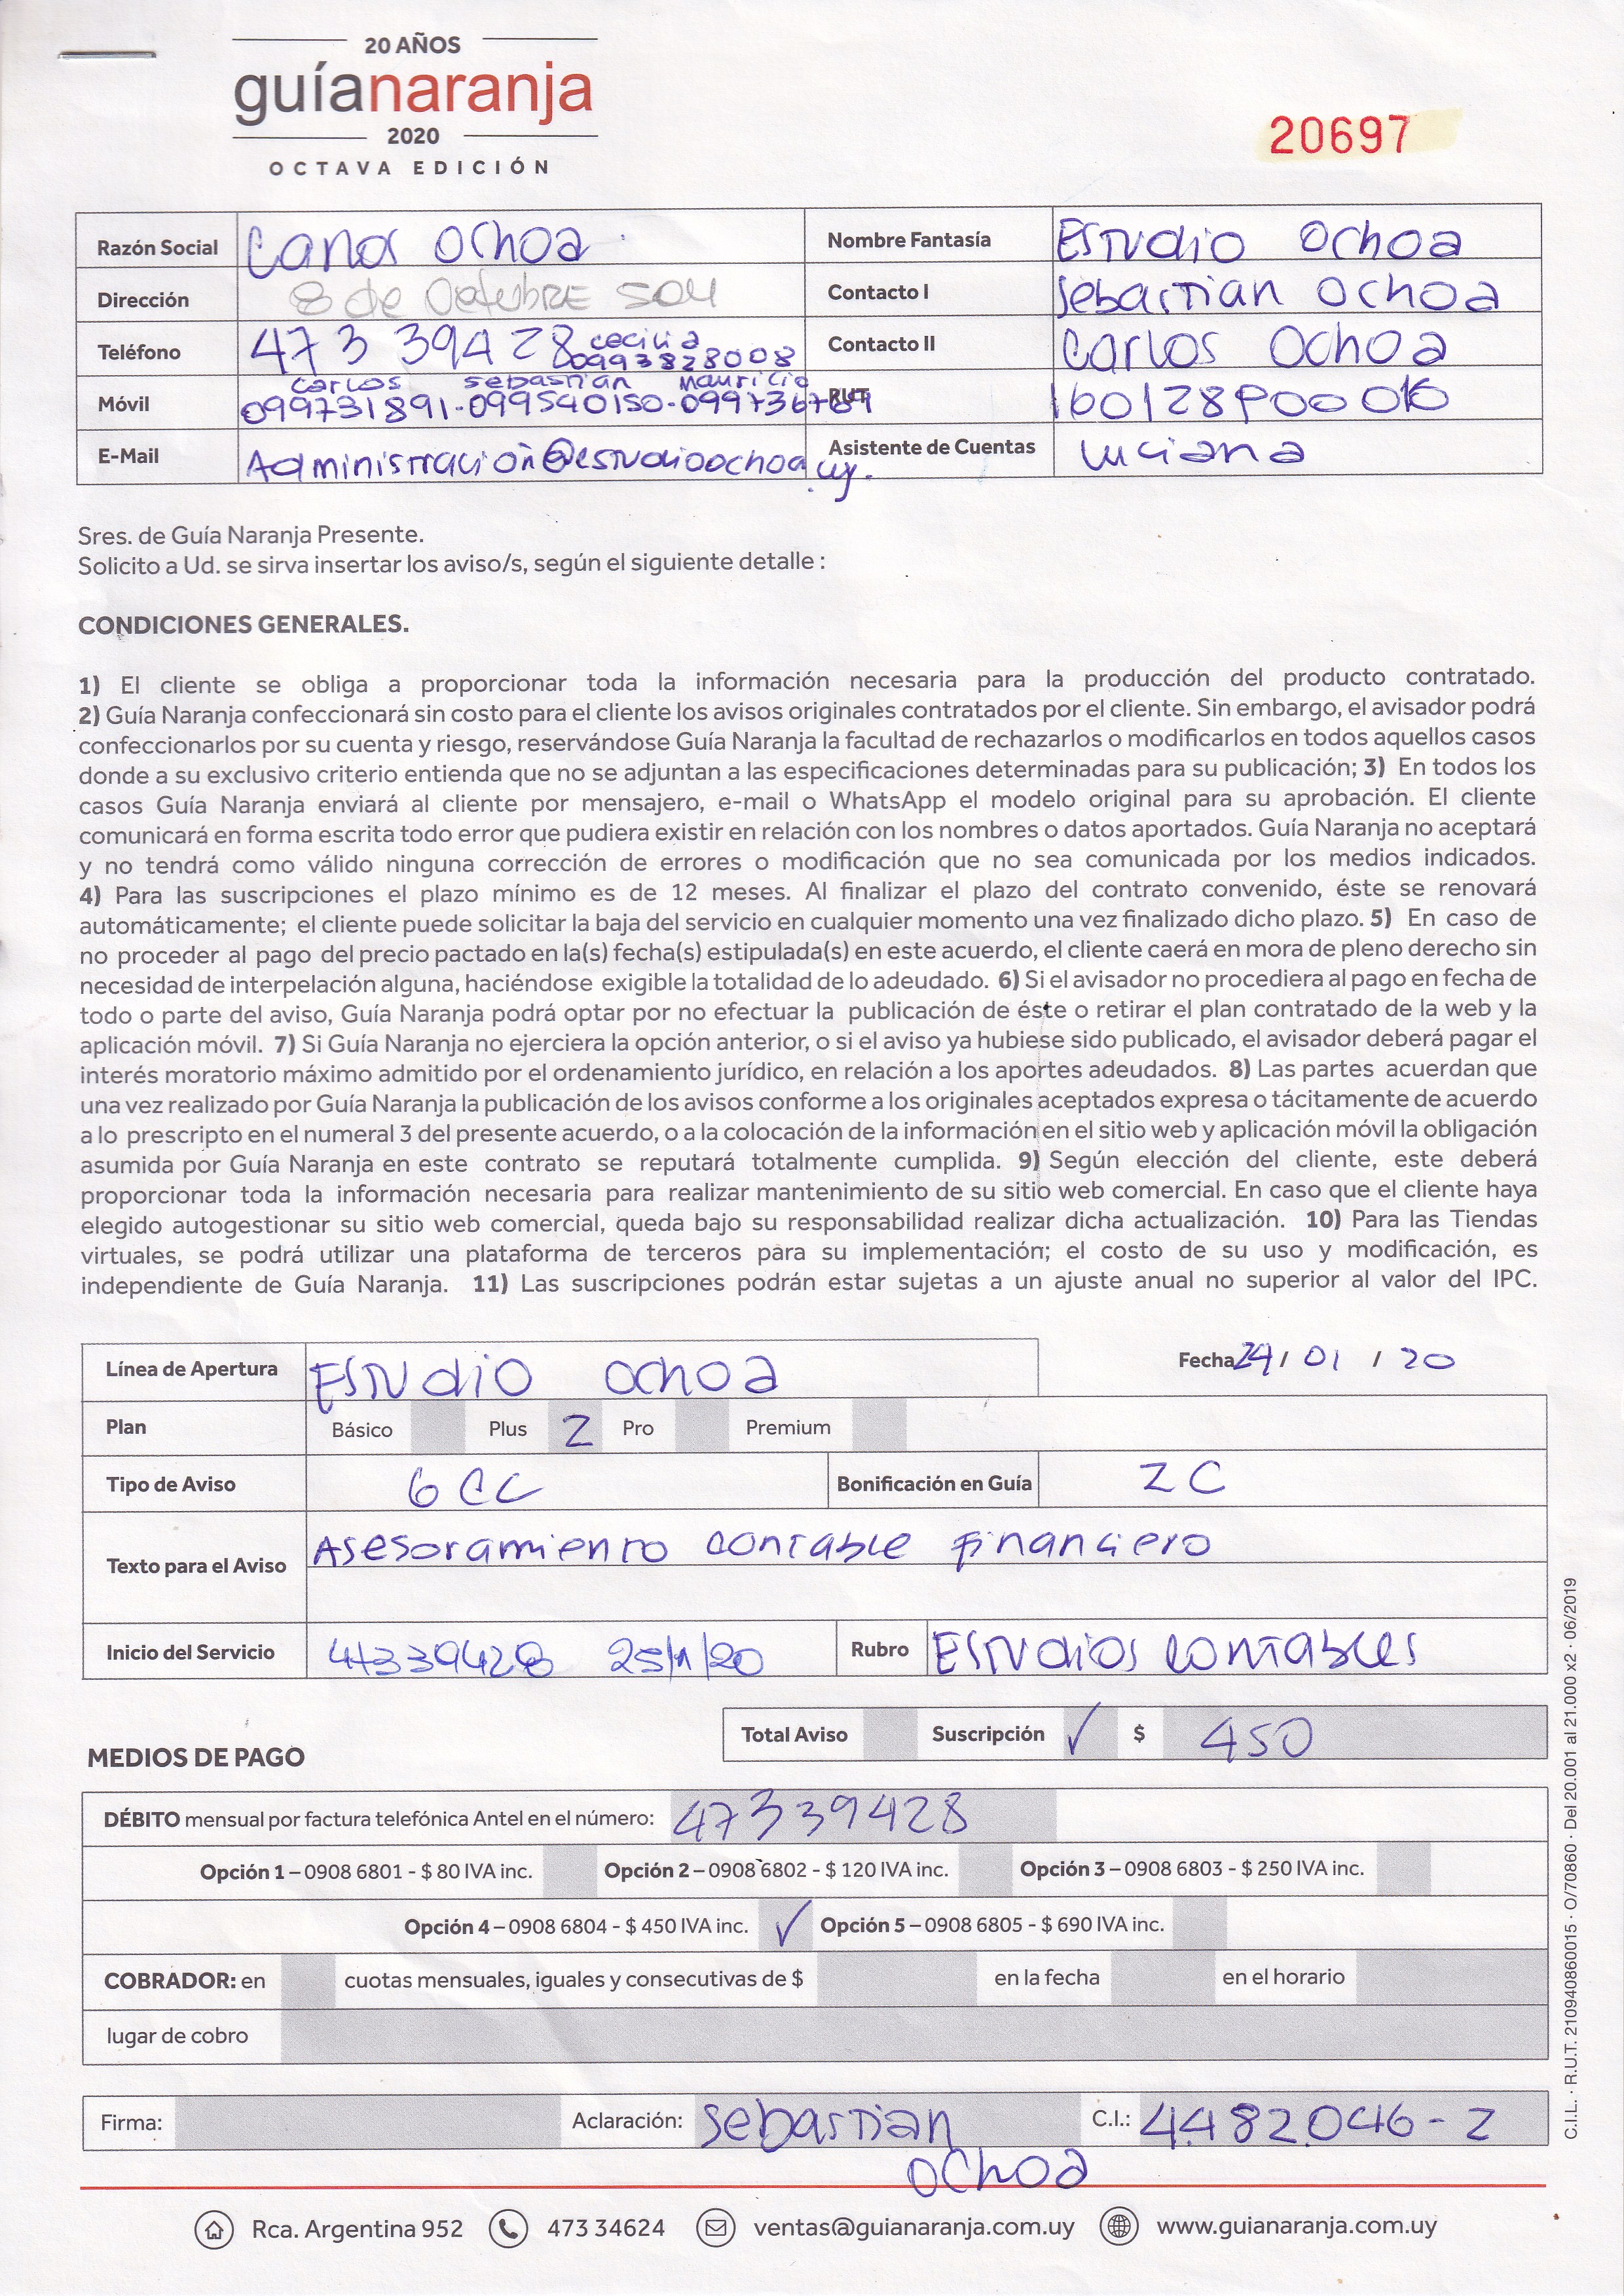 20 AÑOS
guíanaranja
2020
OCTAVA EDICIÓN
20697
Razón Social Carlos Ochoa Nombre Fantasía Estudio Ochoa
Dirección 8 de Octubre 504 Contacto I Sebastian Ochoa
Teléfono 473 39428 cecilia 0993828008 Contacto II Carlos Ochoa
carlos sebastian mauricio
Móvil 099731891-099540150- RUT
E-Mail Administración@estudioochoa.uy. Asistente de Cuentas Luciana
Sres. de Guía Naranja Presente.
Solicito a Ud. se sirva insertar los aviso/s, según el siguiente detalle :
CONDICIONES GENERALES.
1) El cliente se obliga a proporcionar toda la información necesaria para la producción del producto contratado.
2) Guía Naranja confeccionará sin costo para el cliente los avisos originales contratados por el cliente. Sin embargo, el avisador podrá
confeccionarlos por su cuenta y riesgo, reservándose Guía Naranja la facultad de rechazarlos o modificarlos en todos aquellos casos
donde a su exclusivo criterio entienda que no se adjuntan a las especificaciones determinadas para su publicación; 3) En todos los
casos Guía Naranja enviará al cliente por mensajero, e-mail o WhatsApp el modelo original para su aprobación. El cliente
comunicará en forma escrita todo error que pudiera existir en relación con los nombres o datos aportados. Guía Naranja no aceptará
y no tendrá como válido ninguna corrección de errores o modificación que no sea comunicada por los medios indicados.
4) Para las suscripciones el plazo mínimo es de 12 meses. Al finalizar el plazo del contrato convenido, éste se renovará
automáticamente; el cliente puede solicitar la baja del servicio en cualquier momento una vez finalizado dicho plazo. 5) En caso de
no proceder al pago del precio pactado en la(s) fecha(s) estipulada(s) en este acuerdo, el cliente caerá en mora de pleno derecho sin
necesidad de interpelación alguna, haciéndose exigible la totalidad de lo adeudado. 6) Si el avisador no procediera al pago en fecha de
todo o parte del aviso, Guía Naranja podrá optar por no efectuar la publicación de éste o retirar el plan contratado de la web y la
aplicación móvil. 7) Si Guía Naranja no ejerciera la opción anterior, o si el aviso ya hubiese sido publicado, el avisador deberá pagar el
interés moratorio máximo admitido por el ordenamiento jurídico, en relación a los aportes adeudados. 8) Las partes acuerdan que
una vez realizado por Guía Naranja la publicación de los avisos conforme a los originales aceptados expresa o tácitamente de acuerdo
a lo prescripto en el numeral 3 del presente acuerdo, o a la colocación de la información en el sitio web y aplicación móvil la obligación
asumida por Guía Naranja en este contrato se reputará totalmente cumplida. 9) Según elección del cliente, este deberá
proporcionar toda la información necesaria para realizar mantenimiento de su sitio web comercial. En caso que el cliente haya
elegido autogestionar su sitio web comercial, queda bajo su responsabilidad realizar dicha actualización. 10) Para las Tiendas
virtuales, se podrá utilizar una plataforma de terceros para su implementación; el costo de su uso y modificación, es
independiente de Guía Naranja. 11) Las suscripciones podrán estar sujetas a un ajuste anual no superior al valor del IPC.
Línea de Apertura Estudio Ochoa Fecha 24 / 01 / 20
Plan Básico Plus 2 Pro Premium
Tipo de Aviso 6 CC Bonificación en Guía 2C
Texto para el Aviso Asesoramiento contable financiero
Inicio del Servicio 47339428 25/1/20 Rubro Estudios contables
Total Aviso Suscripción ✓ $ 450
MEDIOS DE PAGO
DÉBITO mensual por factura telefónica Antel en el número: 47339428
Opción 1 – 0908 6801 - $ 80 IVA inc. Opción 2 – 0908 6802 - $ 120 IVA inc. Opción 3 – 0908 6803 - $ 250 IVA inc.
Opción 4 – 0908 6804 - $ 450 IVA inc. ✓ Opción 5 – 0908 6805 - $ 690 IVA inc.
COBRADOR: en cuotas mensuales, iguales y consecutivas de $ en la fecha en el horario
lugar de cobro
Firma: Aclaración: Sebastian Ochoa C.I.: 4.482.046-2
Rca. Argentina 952 473 34624 ventas@guianaranja.com.uy www.guianaranja.com.uy
C.I.L. · R.U.T. 210940860015 · O/70860 · Del 20.001 al 21.000 x2 · 06/2019